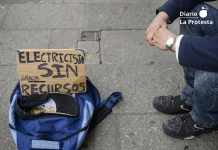 Diario
La Protesta
ELECTRICISTA
SIN
GRACIAS
RECURSOS